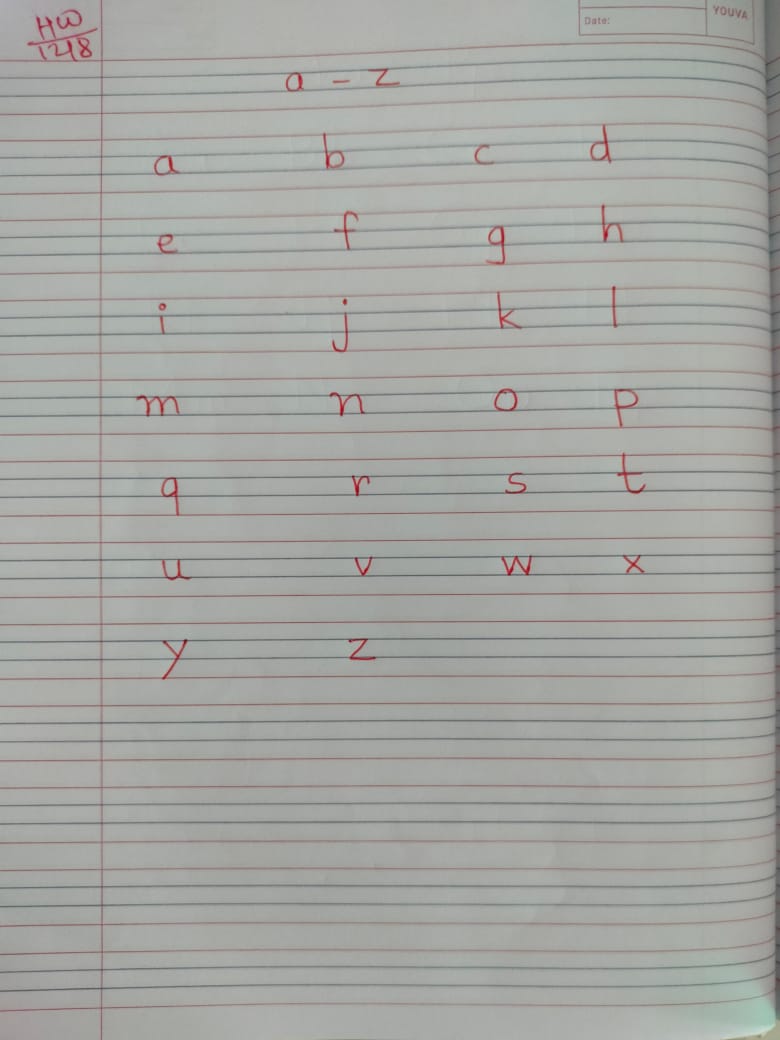 HW
12/8
YOUVA
Date:
a - z
a b c d
e f g h
i j k l
m n o p
q r s t
u v w x
y z